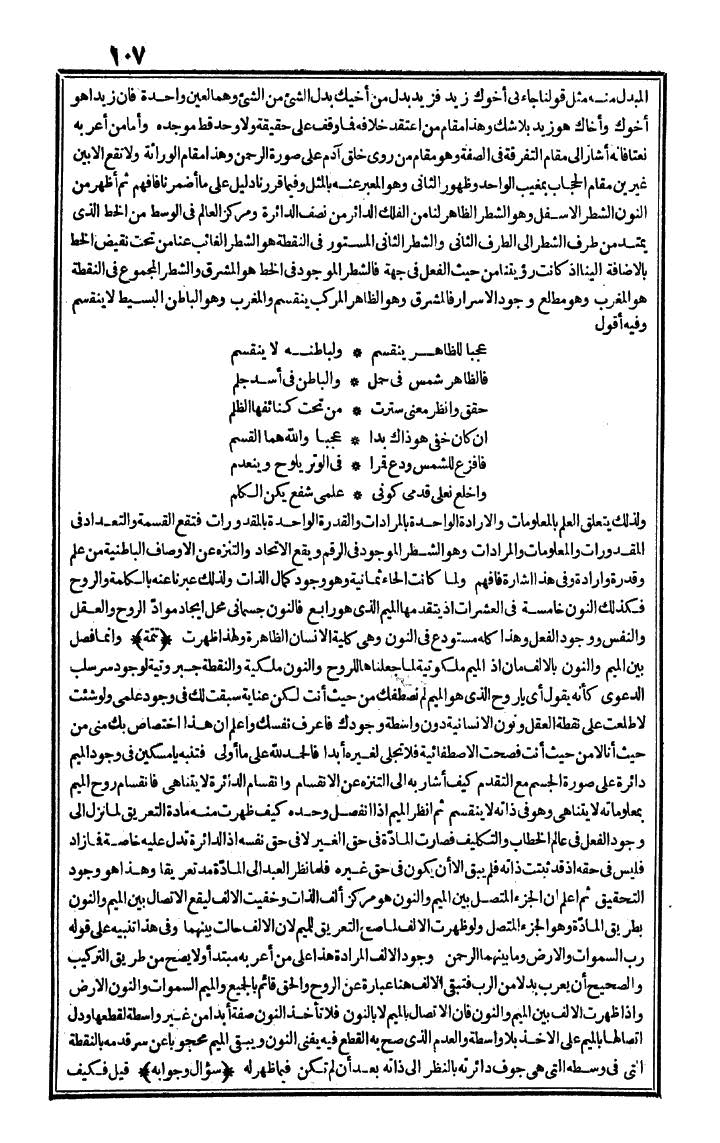 ١٠٧
المبدل منه مثل قولنا جاءنى أخوك زيد فزيد بدل من أخيك بدل الشئ من الشئ وهما لعين واحدة فان زيدا هو
أخوك وأخاك هو زيد بلاشك وهذا مقام من اعتقد خلافه فما وقف على حقيقة ولا وحد قط موجده وأما من أعربه
نعتا فانه أشار الى مقام التفرقة فى الصفة وهو مقام من روى خلق آدم على صورة الرحمن وهذا مقام الوراثة ولا تقع الابين
غيرين مقام الحجاب بمغيب الواحد وظهور الثانى وهو المعبر عنه بالمثل وفيما قررنا دليل على ما أضمرنا فافهم ثم أظهر من
النون الشطر الاسفل وهو الشطر الظاهر لنا من الفلك الدائر من نصف الدائرة ومركز العالم فى الوسط من الخط الذى
يمتد من طرف الشطر الى الطرف الثانى والشطر الثانى المستور فى النقطة هو الشطر الغائب عنا من تحت نقيض الخط
بالاضافة الينا اذ كانت رؤيتنا من حيث الفعل فى جهة فالشطر الموجود فى الخط هو المشرق والشطر المجموع فى النقطة
هو المغرب وهو مطلع وجود الاسرار فالمشرق وهو الظاهر المركب ينقسم والمغرب وهو الباطن البسيط لا ينقسم
وفيه أقول
عجبا للظاهر ينقسم * ولباطنه لا ينقسم
فالظاهر شمس فى حمل * والباطن فى أسد جلم
حقق وانظر معنى سترت * من تحت كنائفها الظلم
ان كان خفى هو ذاك بدا * عجبا والله هما القسم
فافزع للشمس ودع قمرا * فى الوتر يلوح وينعدم
واخلع نعلى قدمى كونى * علمى شفع يكن الكلم
ولذلك يتعلق العلم بالمعلومات والارادة الواحدة بالمرادات والقدرة الواحدة بالمقدورات فتقع القسمة والتعداد فى
المقدورات والمعلومات والمرادات وهو الشطر الموجود فى الرقم ويقع الاتحاد والتنزه عن الاوصاف الباطنية من علم
وقدرة وارادة وفى هذا اشارة فافهم ولما كانت الحاء ثمانية وهو وجود كمال الذات ولذلك عبرنا عنه بالكلمة والروح
فكذلك النون خامسة فى العشرات اذ يتقدمها الميم الذى هو رابع فالنون جسمانى محل ايجاد موادّ الروح والعقل
والنفس ووجود الفعل وهذا كله مستودع فى النون وهى كلية الانسان الظاهرة ولهذا ظهرت ﴿تتمة﴾ وانما فصل
بين الميم والنون بالالف مان اذ الميم ملكوتية لما جعلناها للروح والنون ملكية والنقطة جبروتية لوجود سر سلب
الدعوى كأنه يقول أى يا روح الذى هو الميم لم نصطفك من حيث أنت لكن عناية سبقت لك فى وجود علمى ولو شئت
لاطلعت على نقطة العقل ونون الانسانية دون واسطة وجودك فاعرف نفسك واعلم ان هذا اختصاص بك منى من
حيث أنا لا من حيث أنت فصحت الاصطفائية فلا تجلى لغيره أبدا فالحمد لله على ما أولى فتنبه يا مسكين فى وجود الميم
دائرة على صورة الجسم مع التقدم كيف أشار به الى التنزه عن الانقسام وانقسام الدائرة لا يتناهى فانقسام روح الميم
بمعلوماته لا يتناهى وهو فى ذاته لا ينقسم ثم انظر الميم اذا انفصل وحده كيف ظهرت منه مادة التعريق لما نزل الى
وجود الفعل فى عالم الخطاب والتكليف فصارت المادّة فى حق الغير لا فى حق نفسه اذ الدائرة تدل عليه خاصة فما زاد
فليس فى حقه اذ قد ثبتت ذاته فلم يبق الا أن يكون فى حق غيره فلما نظر العبد الى المادّة مد تعريقا وهذا هو وجود
التحقيق ثم اعلم ان الجزء المتصل بين الميم والنون هو مركز ألف الذات وخفيت الالف ليقع الاتصال بين الميم والنون
بطريق المادّة وهو الجزء المتصل ولو ظهرت الالف لما صح التعريق للميم لان الالف حالت بينهما وفى هذا تنبيه على قوله
رب السموات والارض وما بينهما الرحمن وجود الالف المرادة هذا على من أعربه مبتدأ ولا يصح من طريق التركيب
والصحيح أن يعرب بدلا من الرب فتبقى الالف هنا عبارة عن الروح والحق قائم بالجميع والميم السموات والنون الارض
واذا ظهرت الالف بين الميم والنون فان الاتصال بالميم لا بالنون فلا تأخذ النون صفة أبدا من غير واسطة لقطعها ودل
اتصالها بالميم على الاخذ بلا واسطة والعدم الذى صح به القطع فيه يفنى النون ويبقى الميم محجوبا عن سر قدمه بالنقطة
التى فى وسطه التى هى جوف دائرته بالنظر الى ذاته بعد أن لم تكن فيما ظهر له ﴿سؤال وجوابه﴾ قيل فكيف